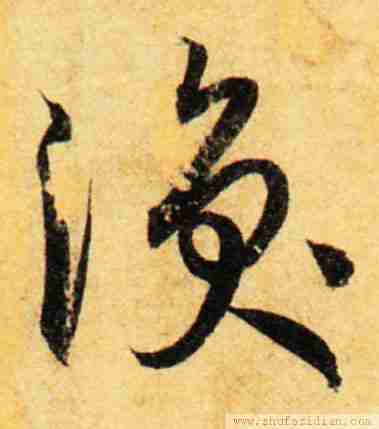 渙
www.shufazidian.com